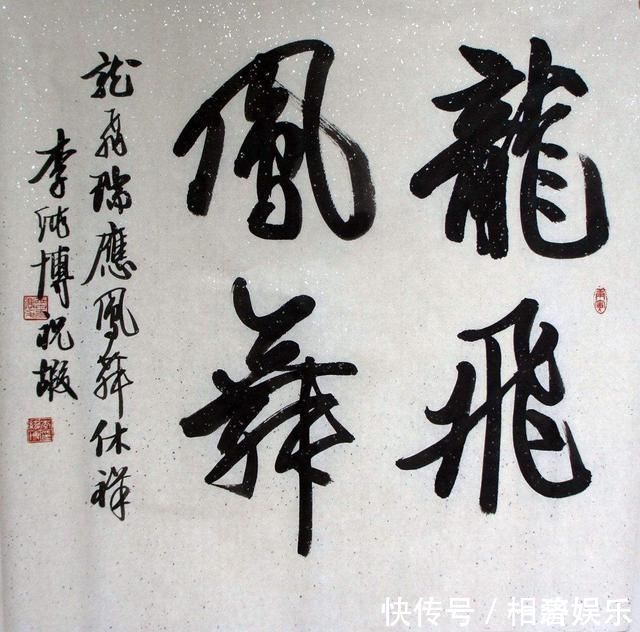 龍飛
鳳舞
龍飛瑞應鳳舞休祥
李純博祝嘏
快传号 / 相馨娱乐